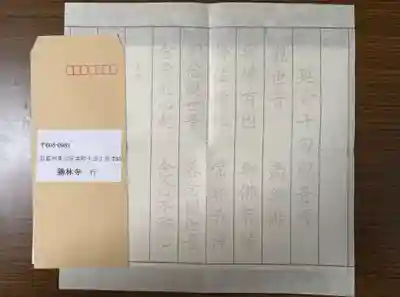 延命十句観音経
観世音　南無佛
与佛有因　与佛有縁
佛法僧縁　常楽我浄
朝念観世音　暮念観世音
念念従心起　念念不離心
〒605-0981
勝林寺　行